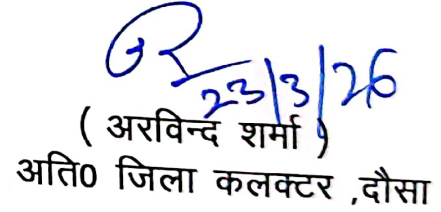 23/3/26
( अरविन्द शर्मा )
अति0 जिला कलक्टर ,दौसा